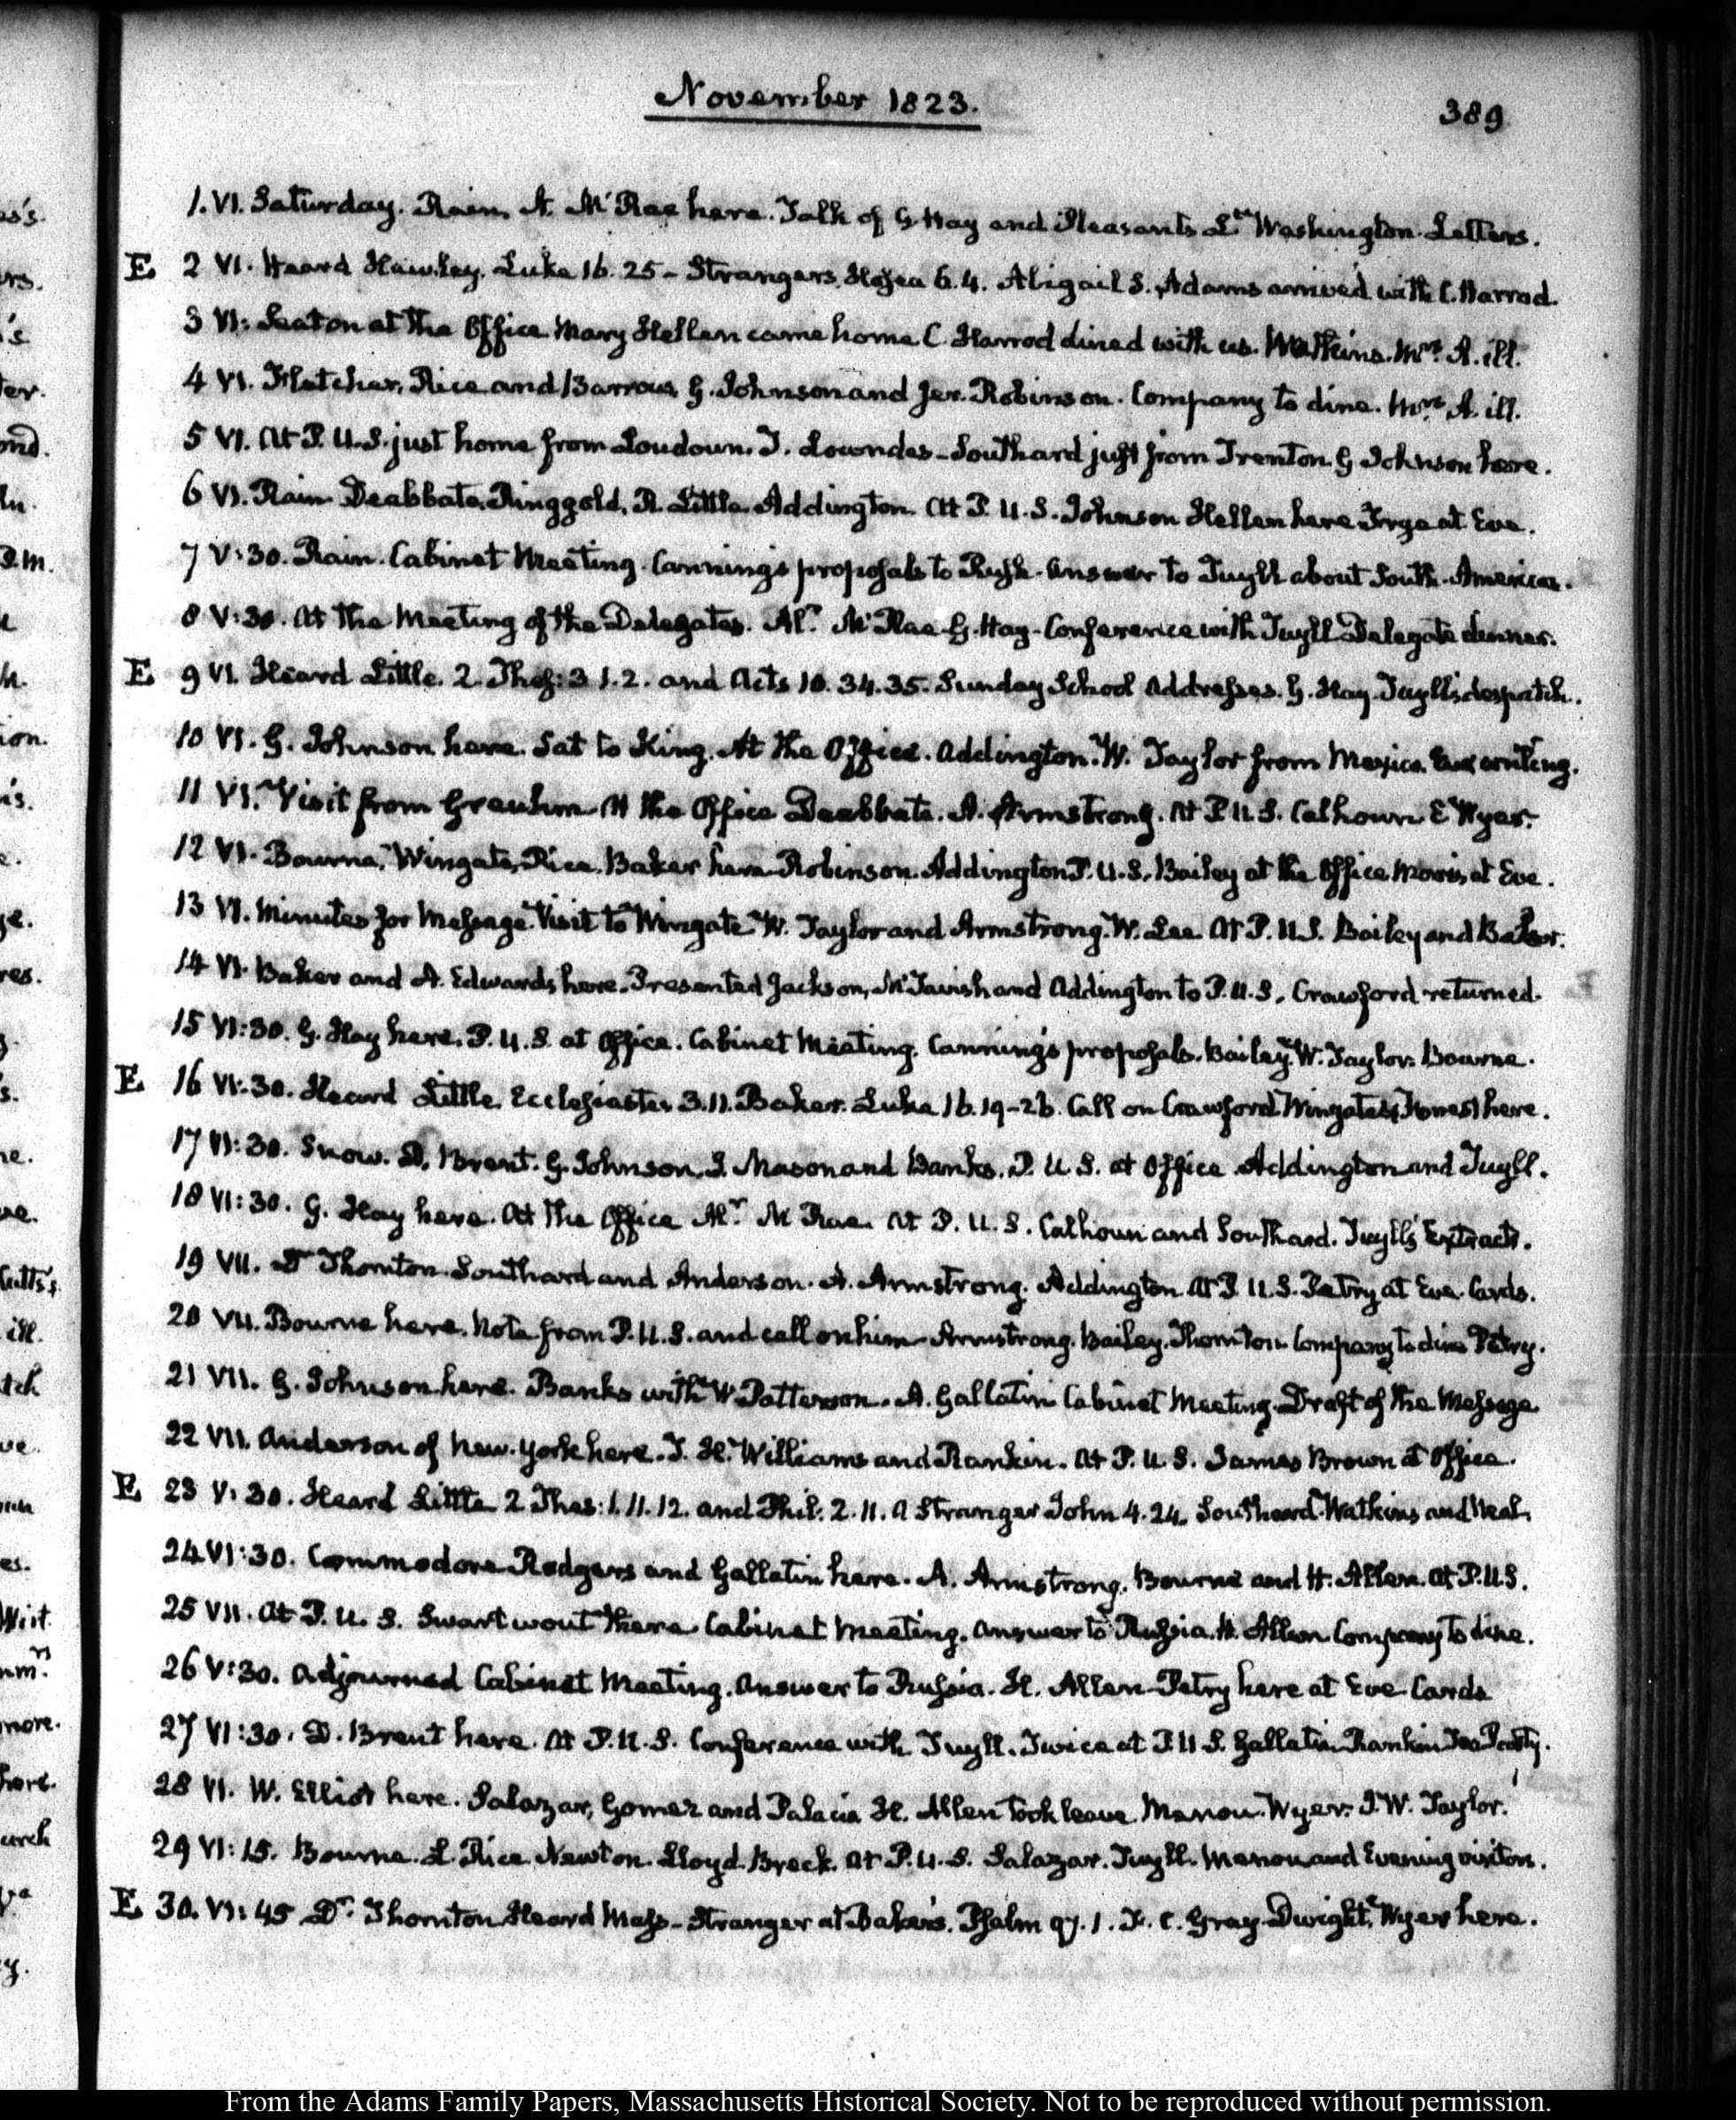 November 1823.
389
1. VI. Saturday. Rain. A. McRae here. Talk of G. Hay and Pleasants Lts. Washington. Letters.
E 2 VI. Heard Hawley. Luke 16. 25 - Strangers. Hosea 6. 4. Abigail S. Adams arrived with C. Harrod.
3 VI: Seaton at the Office Mary Hellen came home C. Harrod dined with us. Watkins. Mrs. A. ill.
4 VI. Fletcher, Rice and Barrows G. Johnson and Jer. Robinson. Company to dine. Mrs. A. ill.
5 VI. At P. U. S. just home from Loudoun. T. Lowndes - Southard just from Trenton. G Johnson here.
6 VI. Rain Deabbate. Ringgold, R. Little Addington. At P. U. S. Johnson Hellen here Frye at Eve.
7 V:30. Rain. Cabinet Meeting. Canning's proposals to Rush. Answer to Tuyll about South-America.
8 V:30. At the Meeting of the Delegates. Alr. McRae. G. Hay. Conference with Tuyll Delegate dinner.
E 9 VI. Heard Little. 2. Thes: 3 1. 2. and Acts 10. 34. 35. Sunday School Addresses. G. Hay. Tuyll's despatch.
10 VI. G. Johnson here. Sat to King. At the Office. Addington. W. Taylor from Mexico. Eve writing.
11 VI. Visit from Greuhm. At the Office Deabbate. A. Armstrong. At P. U. S. Calhoun E. Wyer.
12 VI. Bourne, Wingate, Rice. Baker here Robinson. Addington P. U. S. Bailey at the Office at Eve.
13 VI. Minutes for Message. Visit to Wingate W. Taylor and Armstrong. W. Lee. At P. U. S. Bailey and Baker.
14 VI. Baker and A. Edwards here. Presented Jackson, McTavish and Addington to P. U. S. Crawford returned.
15 VI:30. G. Hay here. P. U. S. at Office. Cabinet Meeting. Canning's proposals. Bailey W. Taylor. Bourne.
E 16 VI:30. Heard Little. Ecclesiastes 3. 11. Baker. Luke 16. 19-26. Call on Crawford Wingate & here.
17 VI:30. Snow. D. Brent. G. Johnson. J. Mason and Banks. P. U. S. at Office. Addington and Tuyll.
18 VI:30. G. Hay here. At the Office Alr. McRae. At P. U. S. Calhoun and Southard. Tuyll's Extracts.
19 VII. Dr Thornton. Southard and Anderson. A. Armstrong. Addington At P. U. S. Petry at Eve. Cards.
20 VII. Bourne here. Note from P. U. S. and call on him. Armstrong. Bailey. Thornton Company to dine Petry.
21 VII. G. Johnson here. Banks with W. Patterson. A. Gallatin Cabinet Meeting. Draft of the Message
22 VII. Anderson of New-York here. T. H. Williams and Rankin. At P. U. S. James Brown at Office.
E 23 V:30. Heard Little 2 Thes: 1. 11. 12. and Phil. 2. 11. A Stranger John 4. 24. Southard Watkins and Neal.
24 VI:30. Commodore Rodgers and Gallatin here. A. Armstrong. Bourne and H. Allen. At P. U. S.
25 VII. At P. U. S. Swartwout there Cabinet Meeting. Answer to Russia. H. Allen Company to dine.
26 V:30. Adjourned Cabinet Meeting. Answer to Russia. H. Allen - Petry here at Eve Cards
27 VI:30. D. Brent here. At P. U. S. Conference with Tuyll. Twice at P. U. S. Gallatin Rankin Tea Party.
28 VI. W. Elliot here. Salazar, Gomez and Palacio H. Allen took leave. Menou. Wyer. J. W. Taylor.
29 VI:15. Bourne. L. Rice Newton. Lloyd. Breck. At P. U. S. Salazar. Tuyll. Menou and Evening visitors.
E 30. VI:45 Dr. Thornton Heard Mass - Stranger at Baker's. Psalm 97. 1. F. C. Gray Dwight, Wyer here.
From the Adams Family Papers, Massachusetts Historical Society. Not to be reproduced without permission.